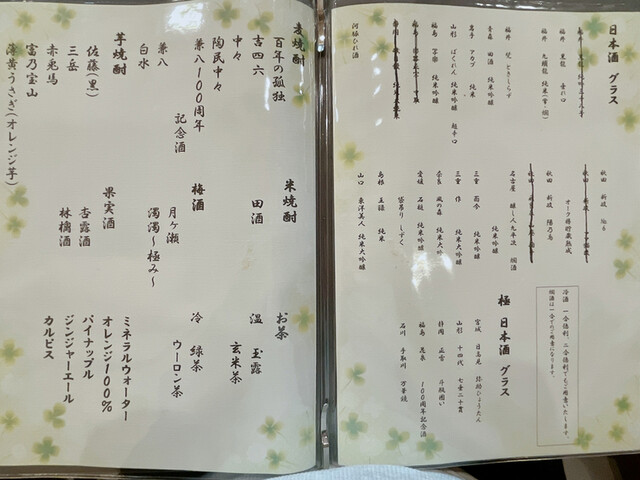 日本酒 グラス
福井 黒龍 垂れ口
福井 九頭龍 純米(常・燗)
福井 梵 ときしらず
青森 田酒 純米
岩手 アカブ 純米
山形 ばくれん 純米吟醸 超辛口
福島 写楽 純米吟醸
河豚ひれ酒
秋田 新政
秋田 新政 陽乃鳥
オーク樽貯蔵熟成
名古屋 醸し人九平次 燗酒
純米吟醸
三重 而今 純米吟醸
三重 作 純米大吟醸
奈良 風の森 純米大吟
愛媛 石鎚 純米吟醸
袋吊り しずく
島根 王祿 純米
山口 東洋美人 純米大吟醸
冷酒 一合徳利、二合徳利でもご用意いたします。
燗酒は一合でのご用意になります。
極 日本酒 グラス
宮城 日高見 弥助ひょうたん
山形 十四代 七垂二十貫
静岡 正雪 斗瓶囲い
福島 飛露喜
100周年記念酒
石川 手取川 万寿鏡
麦焼酎
百年の孤独
吉四六
中々
陶眠中々
兼八100周年
記念酒
兼八
白水
芋焼酎
佐藤(黒)
三岳
赤兎馬
富乃宝山
薄黄うさぎ(オレンジ芋)
米焼酎
田酒
梅酒
月ヶ瀬
濁濁~極み~
果実酒
杏露酒
林檎酒
お茶
温 玉露
玄米茶
冷 緑茶
ウーロン茶
ミネラルウォーター
オレンジ100%
パイナップル
ジンジャーエール
カルピス